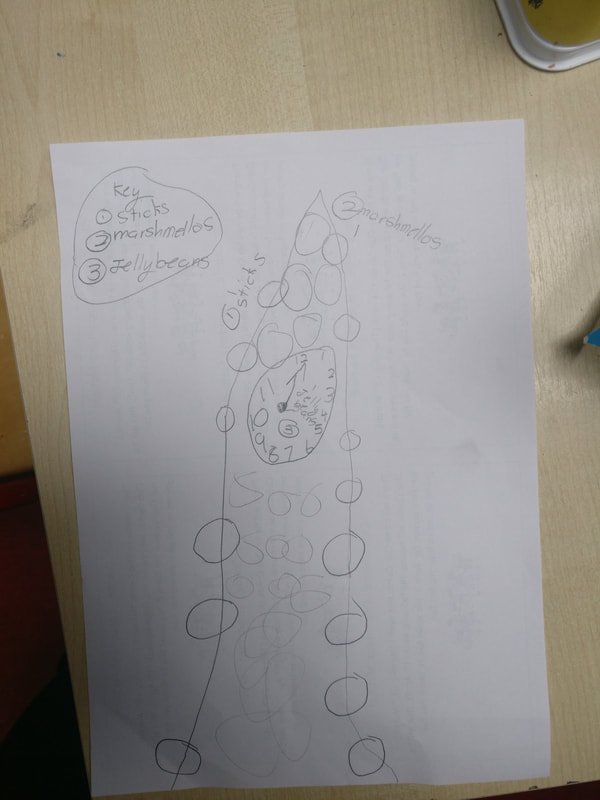 Key
① sticks
② marshmellos
③ Jellybeans
② marshmellos
① sticks
12
1
2
3
4
5
6
7
8
9
10
11
③